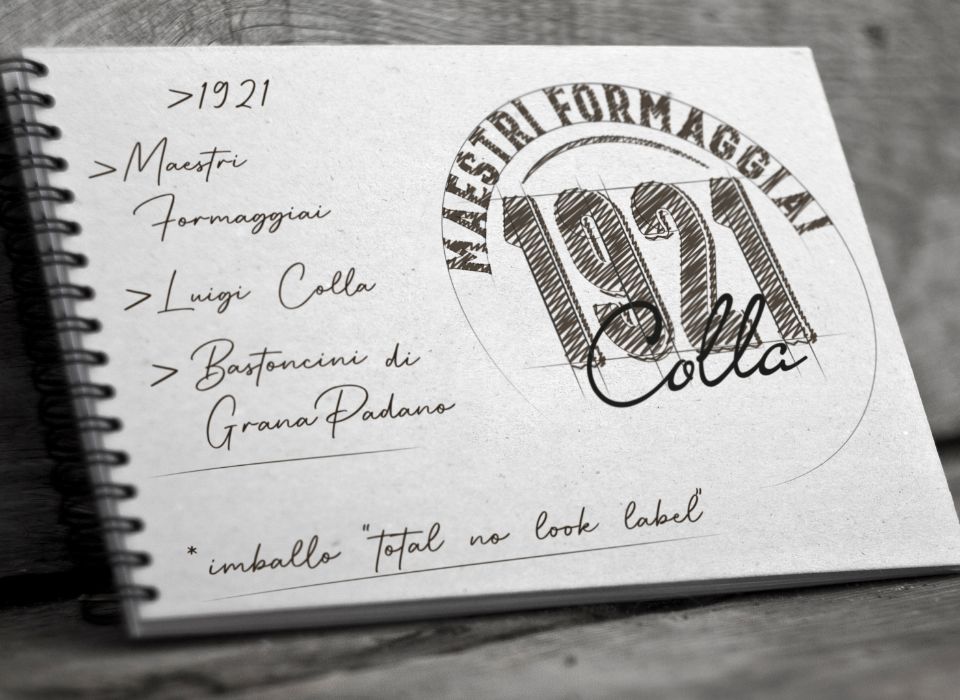 >1921
>Maestri
Formaggiai
>Luigi Colla
> Bastoncini di
Grana Padano
* imballo "total no look label"
MAESTRI FORMAGGIAI
1921
Colla